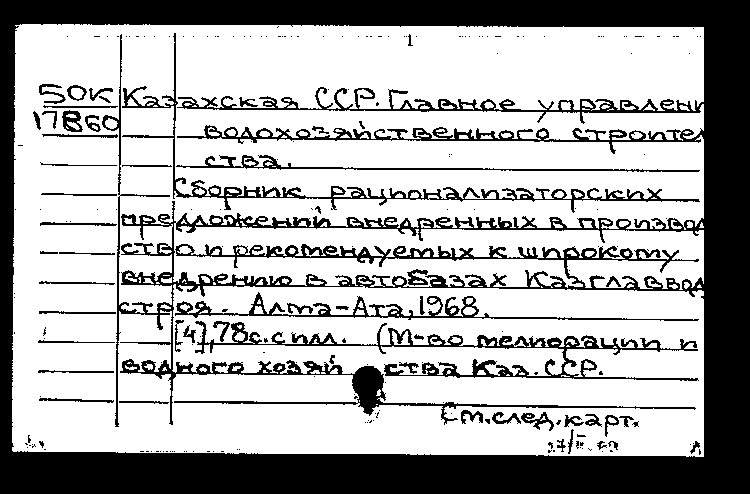 1
50К Казахская ССР. Главное управлени
17860 водохозяйственного строител
ства.
Сборник рационализаторских
предложений внедренных в производ
ство и рекомендуемых к широкому
внедрению в автобазах Казглаввод
строя. Алма-Ата, 1968.
[4], 78с. с илл. (М-во мелиорации и
водного хозяй ства Каз. ССР.
См. след. карт.